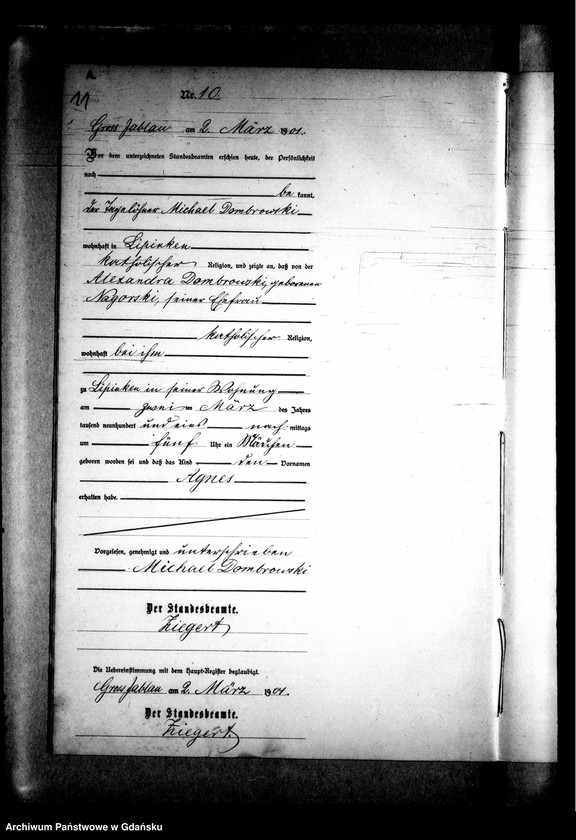 A.
11
Nr. 10.
Gross Jablau am 2. März 1901.
Vor dem unterzeichneten Standesbeamten erschien heute, der Persönlichkeit
nach
be kannt,
der Tagelöhner Michael Dombrowski
wohnhaft in Lipinken
katholischer Religion, und zeigte an, daß von der
Alexandra Dombrowski, geborenen
Nagorski, seiner Ehefrau
katholischer Religion,
wohnhaft bei ihm
zu Lipinken in seiner Wohnung
am zwei ten März des Jahres
tausend neunhundert und eins nach mittags
um fünf Uhr ein Mädchen
geboren worden sei und daß das Kind den Vornamen
Agnes
erhalten habe.
Vorgelesen, genehmigt und unterschrieben
Michael Dombrowski
Der Standesbeamte.
Ziegert
Die Uebereinstimmung mit dem Haupt-Register beglaubigt.
Gross Jablau am 2. März 1901.
Der Standesbeamte.
Ziegert.
Archiwum Państwowe w Gdańsku